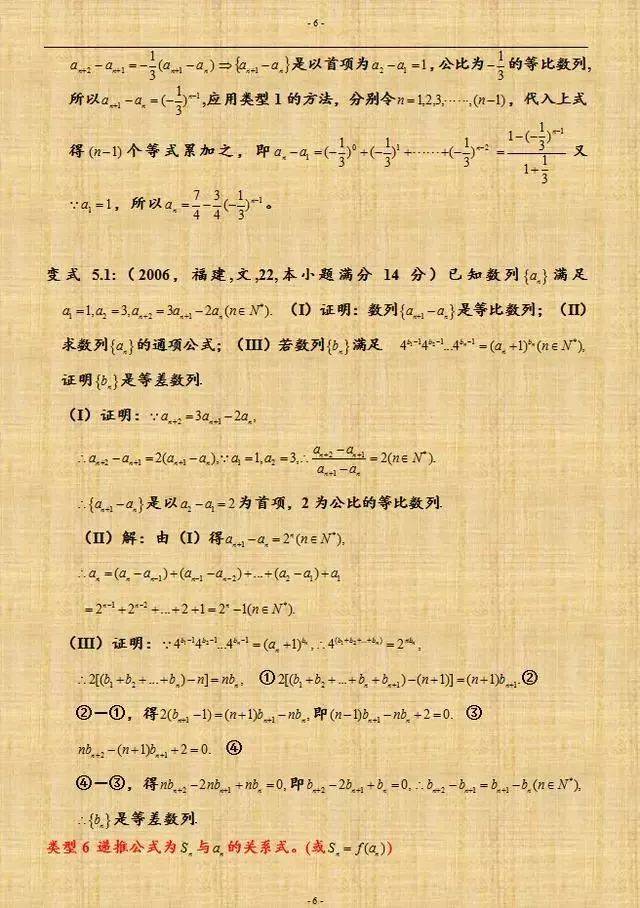 - 6 -
a_{n+2}-a_{n+1}=-\frac{1}{3}(a_{n+1}-a_n)⇒{a_{n+1}-a_n}是以首项为a_2-a_1=1,公比为-\frac{1}{3}的等比数列,
所以a_{n+1}-a_n=(-\frac{1}{3})^{n-1},应用类型1的方法,分别令n=1,2,3,……,(n-1),代入上式
得(n-1)个等式累加之,即a_n-a_1=(-\frac{1}{3})^0+(-\frac{1}{3})^1+……+(-\frac{1}{3})^{n-2}=\frac{1-(-\frac{1}{3})^{n-1}}{1+\frac{1}{3}}又
∵a_1=1,所以a_n=\frac{7}{4}-\frac{3}{4}(-\frac{1}{3})^{n-1}。
变式 5.1:(2006,福建,文,22,本小题满分 14 分)已知数列{a_n}满足
a_1=1,a_2=3,a_{n+2}=3a_{n+1}-2a_n(n∈N^*). (I)证明:数列{a_{n+1}-a_n}是等比数列;(II)
求数列{a_n}的通项公式;(III)若数列{b_n}满足 4^{b_1-1}4^{b_2-1}...4^{b_n-1}=(a_n+1)^{b_n}(n∈N^*),
证明{b_n}是等差数列.
(I)证明:∵a_{n+2}=3a_{n+1}-2a_n,
∴a_{n+2}-a_{n+1}=2(a_{n+1}-a_n),∵a_1=1,a_2=3,∴\frac{a_{n+2}-a_{n+1}}{a_{n+1}-a_n}=2(n∈N^*).
∴{a_{n+1}-a_n}是以a_2-a_1=2为首项,2为公比的等比数列.
(II)解:由(I)得a_{n+1}-a_n=2^n(n∈N^*),
∴a_n=(a_n-a_{n-1})+(a_{n-1}-a_{n-2})+...+(a_2-a_1)+a_1
=2^{n-1}+2^{n-2}+...+2+1=2^n-1(n∈N^*).
(III)证明:∵4^{b_1-1}4^{b_2-1}...4^{b_n-1}=(a_n+1)^{b_n},∴4^{(b_1+b_2+...+b_n)}=2^{nb_n},
∴2[(b_1+b_2+...+b_n)-n]=nb_n, ①2[(b_1+b_2+...+b_n+b_{n+1})-(n+1)]=(n+1)b_{n+1}.②
②—①,得2(b_{n+1}-1)=(n+1)b_{n+1}-nb_n,即(n-1)b_{n+1}-nb_n+2=0. ③
nb_{n+2}-(n+1)b_{n+1}+2=0. ④
④—③,得nb_{n+2}-2nb_{n+1}+nb_n=0,即b_{n+2}-2b_{n+1}+b_n=0,∴b_{n+2}-b_{n+1}=b_{n+1}-b_n(n∈N^*),
∴{b_n}是等差数列.
类型 6 递推公式为S_n与a_n的关系式。(或S_n=f(a_n))
- 6 -